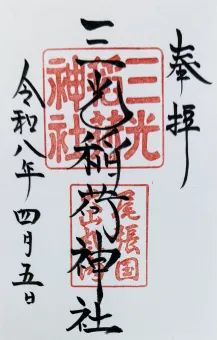 奉拝
三光稲荷神社
令和八年四月五日
三光
稲荷
神社
尾張国